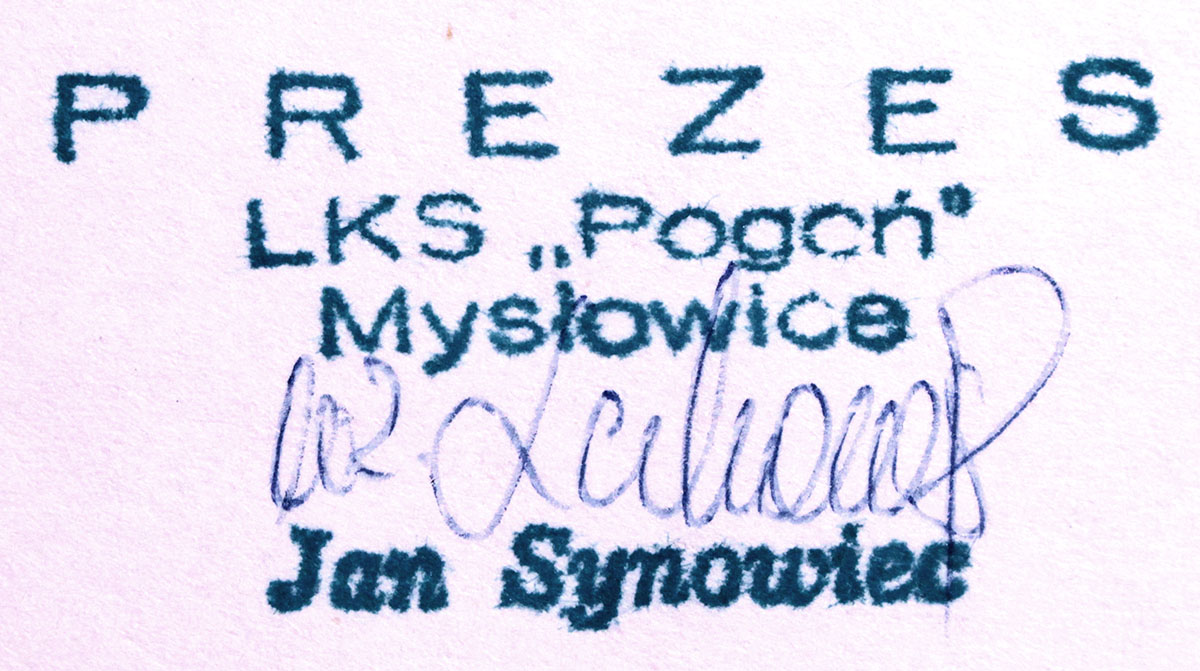 PREZES
LKS „Pogoń"
Mysłowice
Jan Synowiec